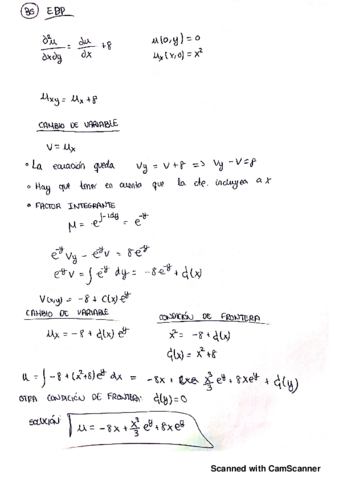 85 EDP
∂²u/∂x∂y = du/dx + 8   u(0,y) = 0
u_x(x,0) = x²
u_xy = u_x + 8
CAMBIO DE VARIABLE
V = u_x
• La ecuación queda V_y = V + 8 => V_y - V = 8
• Hay que tener en cuenta que la cte. incluye a x
• FACTOR INTEGRANTE
μ = e^∫-1dy = e^-y
e^-y V_y - e^-y V = 8e^-y
e^-y V = ∫ e^-y dy = -8e^-y + C(x)
V(x,y) = -8 + C(x) e^y
CAMBIO DE VARIABLE   CONDICIÓN DE FRONTERA
u_x = -8 + C(x) e^y   x² = -8 + C(x)
C(x) = x² + 8
u = ∫ -8 + (x²+8) e^y dx = -8x + x³/3 e^y + 8xe^y + C(y)
OTRA CONDICIÓN DE FRONTERA: C(y) = 0
SOLUCIÓN: u = -8x + x³/3 e^y + 8xe^y
Scanned with CamScanner